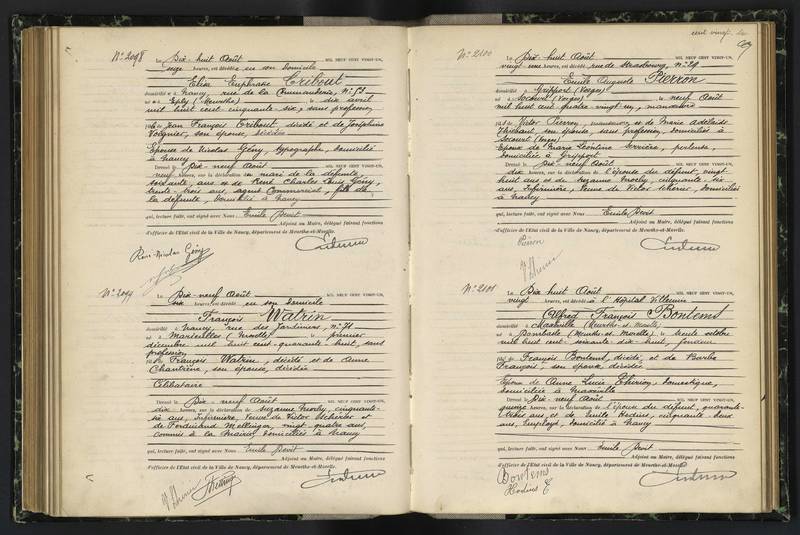 N° 2098
Le Dix-huit Août MIL NEUF CENT VINGT-UN,
seize heures, est décédée en son domicile
Elisa Euphrasie Tribout
domiciliée à Nancy, rue de la Commanderie, N° 53
née à Eply (Meurthe) le dix avril
mil huit cent cinquante-six, sans profession
fille de Jean François Tribout, décédé et de Joséphine
son épouse, décédée
Epouse de Nicolas Gény, typographe, domicilié
à Nancy
Dressé le Dix-neuf Août MIL NEUF CENT VINGT-UN,
neuf heures, sur la déclaration du mari de la défunte,
soixante, ans et de René Charles Louis Gény,
trente-trois ans, agent Commercial, fils de
la défunte, domiciliés à Nancy
qui, lecture faite, ont signé avec Nous Emile Devit
Adjoint au Maire, délégué faisant fonctions
d'officier de l'Etat civil de la Ville de Nancy, département de Meurthe-et-Moselle.
Nicolas Gény
N° 2099
Le Dix-neuf Août MIL NEUF CENT VINGT-UN,
six heures, est décédé en son domicile
François Watrin
domicilié à Nancy, rue des Jardiniers, N° 71
né à (Moselle) le premier
décembre mil huit cent-quarante-huit, sans
profession
fils de François Watrin, décédé et de Anne
son épouse, décédée
Célibataire
Dressé le Dix-neuf Août MIL NEUF CENT VINGT-UN,
dix heures, sur la déclaration de Suzanne cinquante-
six ans, Infirmière, Veuve de Victor
et de Ferdinand vingt-quatre ans,
commis à la Mairie, domiciliés à Nancy
qui, lecture faite, ont signé avec Nous Emile Devit
Adjoint au Maire, délégué faisant fonctions
d'officier de l'Etat civil de la Ville de Nancy, département de Meurthe-et-Moselle.
cent vingt
N° 2100
Le Dix-huit Août MIL NEUF CENT VINGT-UN,
vingt-une heures, est décédé rue de Strasbourg, N° 29
Emile Auguste Pierron
domicilié à Gripport (Vosges)
né à Socourt (Vosges) le neuf Août
mil huit cent quatre-vingt-un, manœuvre
fils de Victor Pierron, manœuvre et de Marie Adélaïde
Thiébaut, son épouse, sans profession, domiciliés à
Socourt (Vosges)
Epoux de Marie Léontine perleuse,
domiciliée à Gripport
Dressé le Dix-neuf Août MIL NEUF CENT VINGT-UN,
dix heures, sur la déclaration de l'épouse du défunt, vingt-
huit ans et de Suzanne cinquante-six
ans, Infirmière, Veuve de Victor domiciliés
à Nancy
qui, lecture faite, ont signé avec Nous Emile Devit
Adjoint au Maire, délégué faisant fonctions
d'officier de l'Etat civil de la Ville de Nancy, département de Meurthe-et-Moselle.
Pierron
N° 2101
Le Dix-huit Août MIL NEUF CENT VINGT-UN,
vingt heures, est décédé à l'Hôpital Villemin
Alfred François Bontems
domicilié à Maxéville (Meurthe-et-Moselle)
né à Dombasle (Meurthe et Moselle) le trente octobre
mil huit cent-soixante-dix-huit,
fils de François Bontems, décédé et de Barbe
François, son épouse, décédée
Epoux de Anne Lucie Thirion, domestique,
domiciliée à Maxéville
Dressé le Dix-neuf Août MIL NEUF CENT VINGT-UN,
quinze heures, sur la déclaration de l'épouse du défunt, quarante-
ans et de Emile Hodins, cinquante-deux
ans, Employé, domicilié à Nancy
qui, lecture faite, ont signé avec Nous Emile Devit
Adjoint au Maire, délégué faisant fonctions
d'officier de l'Etat civil de la Ville de Nancy, département de Meurthe-et-Moselle.
Bontems
Hodins E